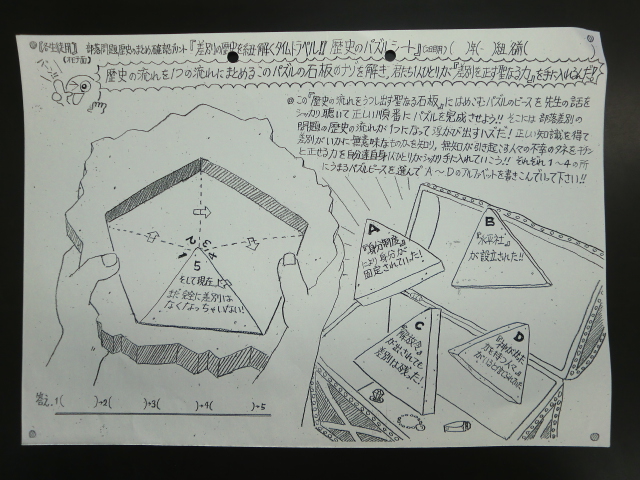 部落問題歴史のまとめ確認プリント『差別の歴史を紐解くタイムトラベル!! 歴史のパズルシート』( )年( )組 名前( )
歴史の流れを1つの流れにまとめるこのパズルの石板のナゾを解き、君たち1人ひとりが『差別を正す聖なる力』を手に入れるんだ!!
この『歴史の流れをうつし出す聖なる石板』にはめこむパズルのピースを先生の話を
シッカリ聴いて正しい順番にパズルを完成させよう!! そこには部落差別の
問題の歴史の流れが1つになって浮かび出すハズだ! 正しい知識を得て
差別がいかに無意味なものかを知り、無知が引き起こす人々の不幸のタネをキチン
と正せる力を自分達自身1人ひとりがシッカリ手に入れていこう!! それぞれ1〜4の所
にうまるパズルピースを選んでA〜Dのアルファベットを書きこんでいって下さい!!
A
『身分制度』
により身分が
固定されていた!
B
『水平社』
が設立された!!
1
2
3
4
5
そして現在…
まだ完全に差別は
なくなっちゃいない!
C
『解放令』
が出されても
差別は残った!
D
答え. 1( )→2( )→3( )→4( )→5